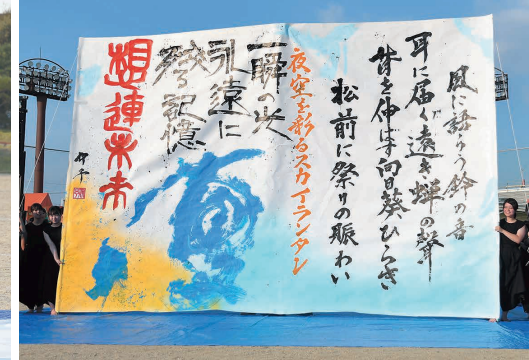 風に語らう鈴の音
耳に届く遠き蝉の聲
背を伸ばす向日葵ひらき
松前に祭りの賑わい
夜空を彩るスカイランタン
一瞬の光
永遠に
残る記憶
想連未来